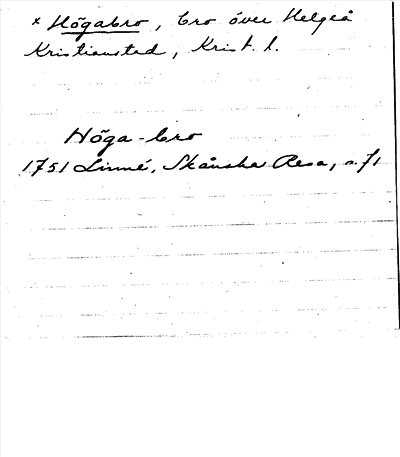 × Högabro, bro över Helgeå
Kristianstad, Krist. l.
Höga-bro
1751 Linné, Skånska Resa, s. 71